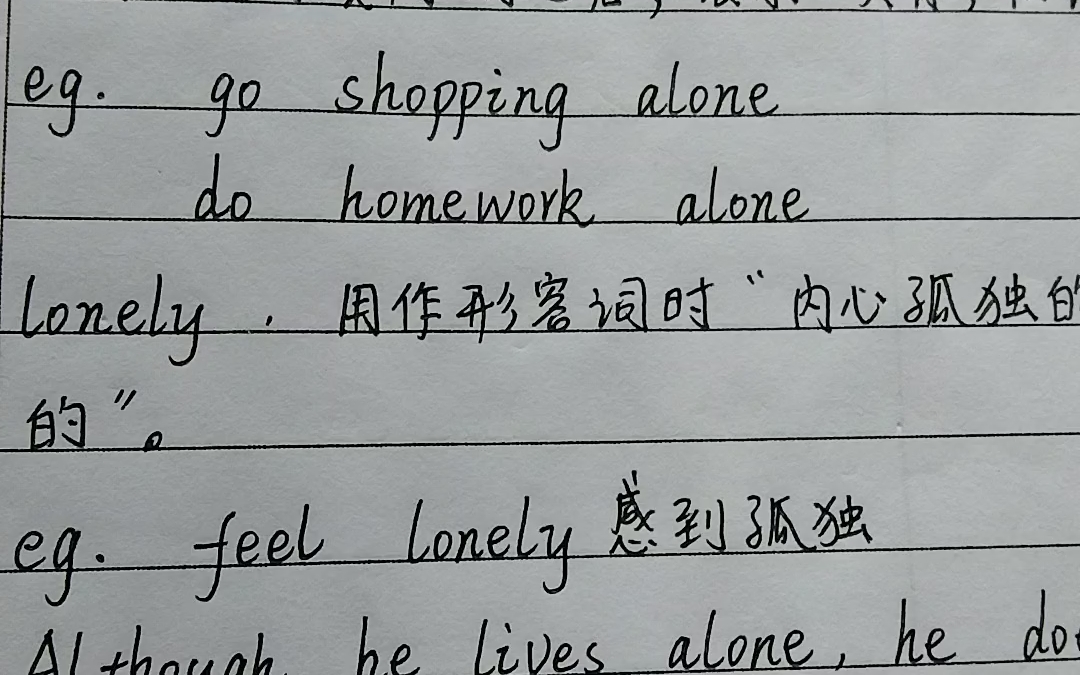 eg. go shopping alone
do homework alone
lonely. 用作形容词时“内心孤独的
的”。
eg. feel lonely 感到孤独
Although he lives alone, he